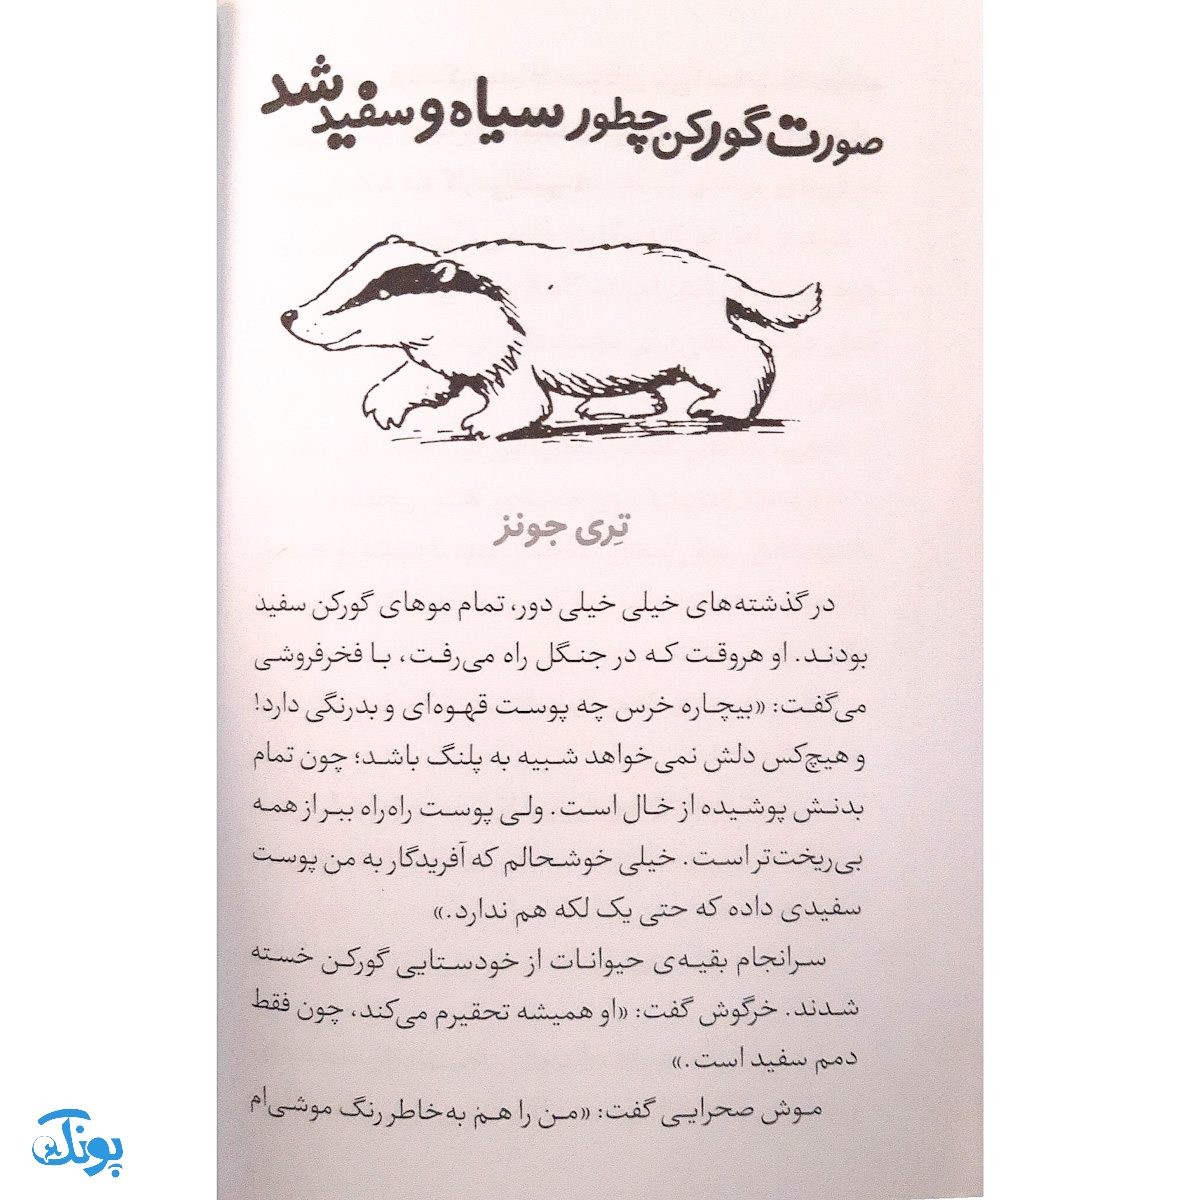 صورت گورکن چطور سیاه و سفید شد
تِری جونز
در گذشته‌های خیلی خیلی دور، تمام موهای گورکن سفید
بودند. او هروقت که در جنگل راه می‌رفت، با فخرفروشی
می‌گفت: «بیچاره خرس چه پوست قهوه‌ای و بدرنگی دارد!
و هیچ‌کس دلش نمی‌خواهد شبیه به پلنگ باشد؛ چون تمام
بدنش پوشیده از خال است. ولی پوست راه‌راه ببر از همه
بی‌ریخت‌تر است. خیلی خوشحالم که آفریدگار به من پوست
سفیدی داده که حتی یک لکه هم ندارد.»
سرانجام بقیه‌ی حیوانات از خودستایی گورکن خسته
شدند. خرگوش گفت: «او همیشه تحقیرم می‌کند، چون فقط
دمم سفید است.»
موش صحرایی گفت: «من را هم به‌خاطر رنگ موشی‌ام
پونک